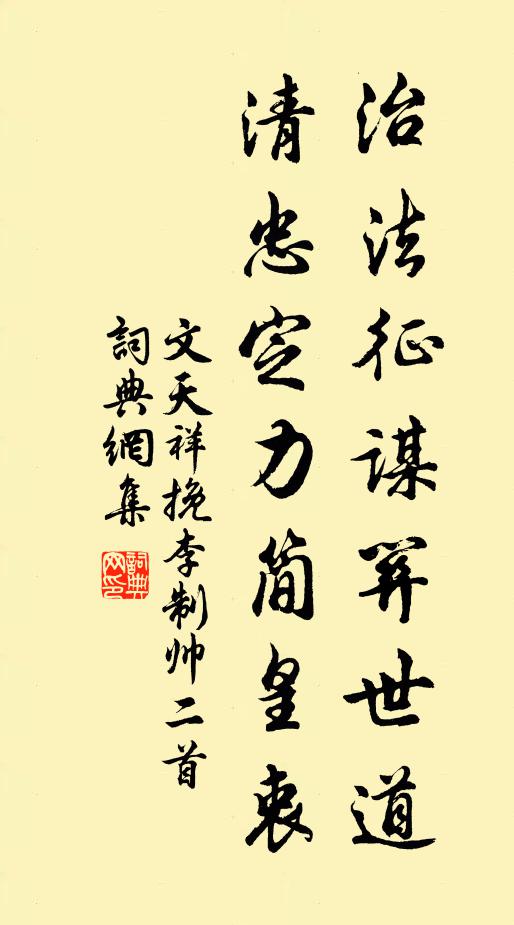 治法征謀關世道
清忠定力简皇衷
文天祥挽李制帅二首
詞典網集
詞典网印